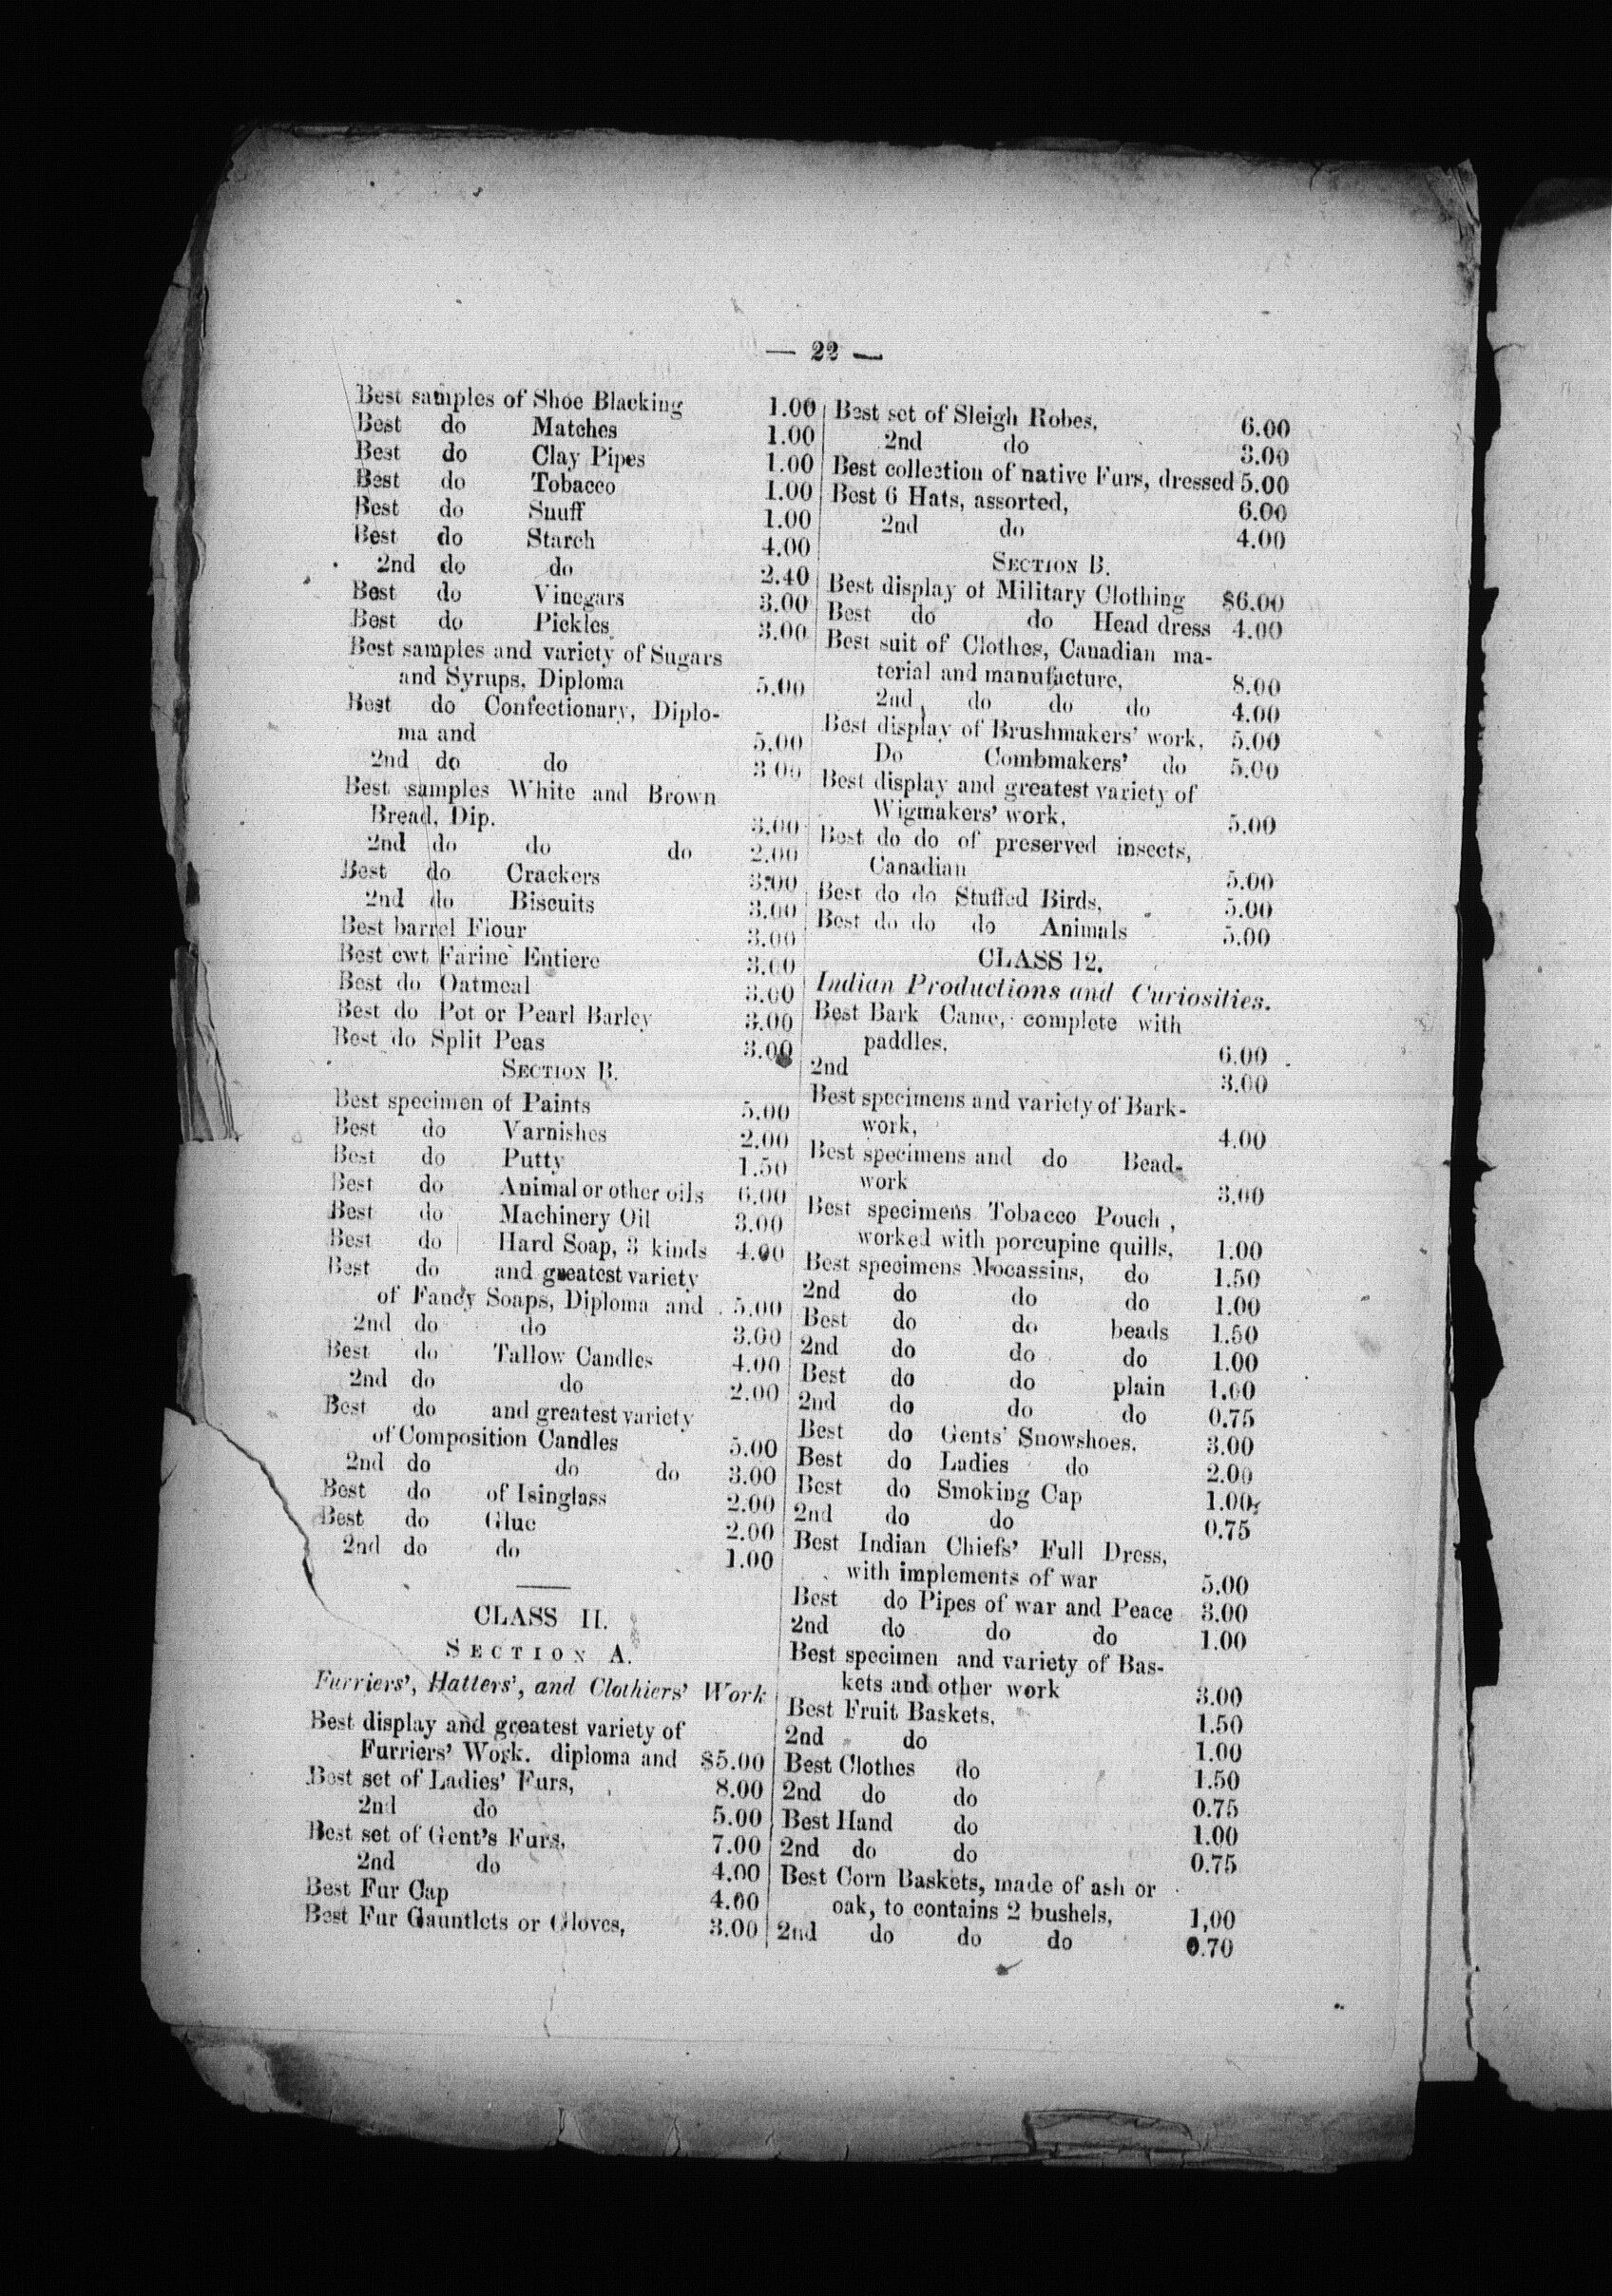 — 22 —
Best samples of Shoe Blacking 1.00
Best do Matches 1.00
Best do Clay Pipes 1.00
Best do Tobacco 1.00
Best do Snuff 1.00
Best do Starch 4.00
2nd do do 2.40
Best do Vinegars 3.00
Best do Pickles 3.00
Best samples and variety of Sugars
and Syrups, Diploma 5.00
Best do Confectionary, Diplo-
ma and 5.00
2nd do do 3.00
Best samples White and Brown
Bread, Dip. 3.00
2nd do do do 2.00
Best do Crackers 3.00
2nd do Biscuits 3.00
Best barrel Flour 3.00
Best cwt Farine Entiere 3.00
Best do Oatmeal 3.00
Best do Pot or Pearl Barley 3.00
Best do Split Peas 3.00
SECTION B.
Best specimen of Paints 5.00
Best do Varnishes 2.00
Best do Putty 1.50
Best do Animal or other oils 6.00
Best do Machinery Oil 3.00
Best do Hard Soap, 3 kinds 4.00
Best do and greatest variety
of Fancy Soaps, Diploma and 5.00
2nd do do 3.00
Best do Tallow Candles 4.00
2nd do do 2.00
Best do and greatest variety
of Composition Candles 5.00
2nd do do do 3.00
Best do of Isinglass 2.00
Best do Glue 2.00
2nd do do 1.00
CLASS II.
SECTION A.
Furriers', Hatters', and Clothiers' Work
Best display and greatest variety of
Furriers' Work. diploma and $5.00
Best set of Ladies' Furs, 8.00
2nd do 5.00
Best set of Gent's Furs, 7.00
2nd do 4.00
Best Fur Cap 4.00
Best Fur Gauntlets or Gloves, 3.00
Best set of Sleigh Robes, 6.00
2nd do 3.00
Best collection of native Furs, dressed 5.00
Best 6 Hats, assorted, 6.00
2nd do 4.00
SECTION B.
Best display of Military Clothing $6.00
Best do do Head dress 4.00
Best suit of Clothes, Canadian ma-
terial and manufacture, 8.00
2nd do do do 4.00
Best display of Brushmakers' work, 5.00
Do Combmakers' do 5.00
Best display and greatest variety of
Wigmakers' work, 5.00
Best do do of preserved insects,
Canadian 5.00
Best do do Stuffed Birds, 5.00
Best do do do Animals 5.00
CLASS 12.
Indian Productions and Curiosities.
Best Bark Canoe, complete with
paddles, 6.00
2nd 3.00
Best specimens and variety of Bark-
work, 4.00
Best specimens and do Bead-
work 3.00
Best specimens Tobacco Pouch ,
worked with porcupine quills, 1.00
Best specimens Mocassins, do 1.50
2nd do do do 1.00
Best do do beads 1.50
2nd do do do 1.00
Best do do plain 1.00
2nd do do do 0.75
Best do Gents' Snowshoes, 3.00
Best do Ladies do 2.00
Best do Smoking Cap 1.00
2nd do do 0.75
Best Indian Chiefs' Full Dress,
with implements of war 5.00
Best do Pipes of war and Peace 3.00
2nd do do do 1.00
Best specimen and variety of Bas-
kets and other work 3.00
Best Fruit Baskets, 1.50
2nd do 1.00
Best Clothes do 1.50
2nd do do 0.75
Best Hand do 1.00
2nd do do 0.75
Best Corn Baskets, made of ash or
oak, to contains 2 bushels, 1,00
2nd do do do 0.70